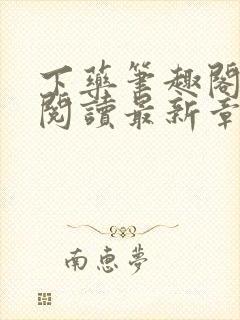 下藥筆趣閣
閱讀最新章
南恵夢